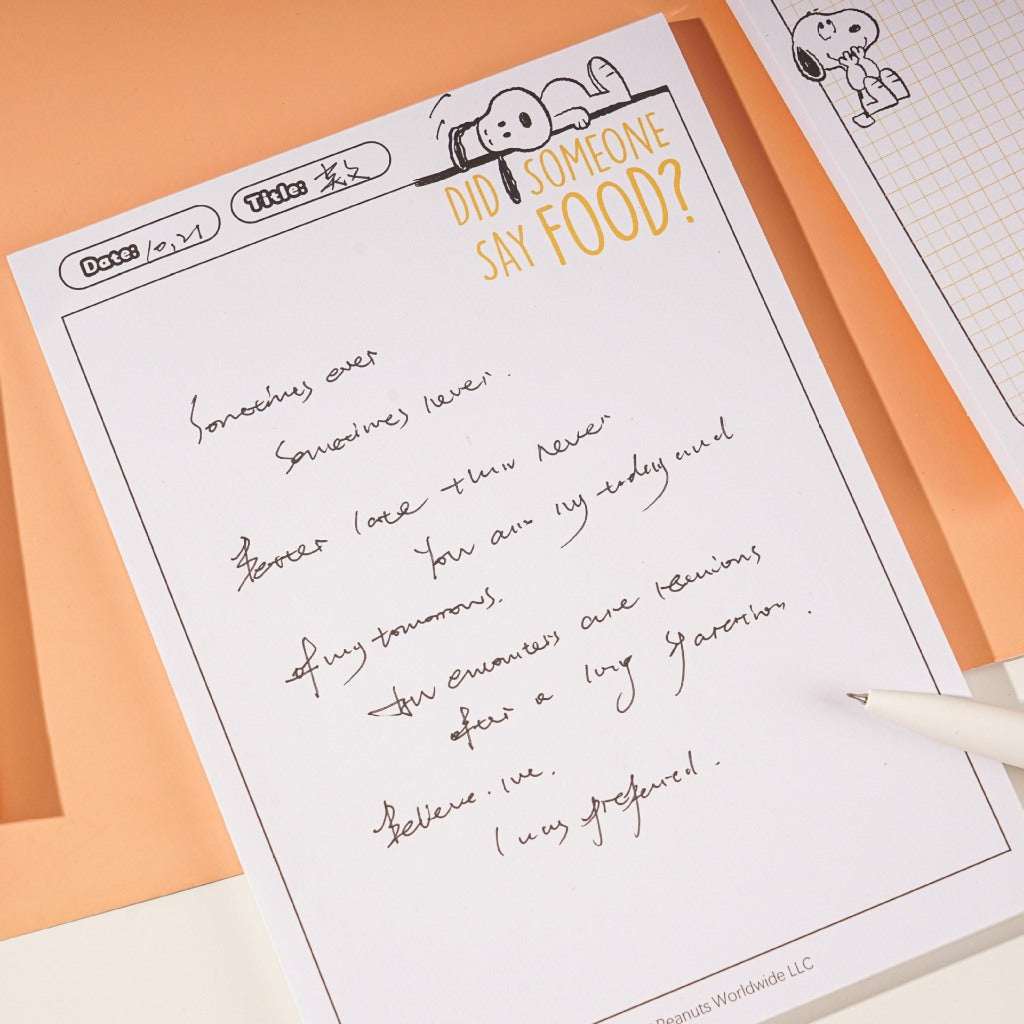 DID SOMEONE
SAY FOOD?
Title:
Date: 10,21
Sometimes ever
Sometimes never.
Better late than never
You are my today and
of my tomorrows.
encounters are reunions
after a long
Believe. me.
I was preferred.
Peanuts Worldwide LLC